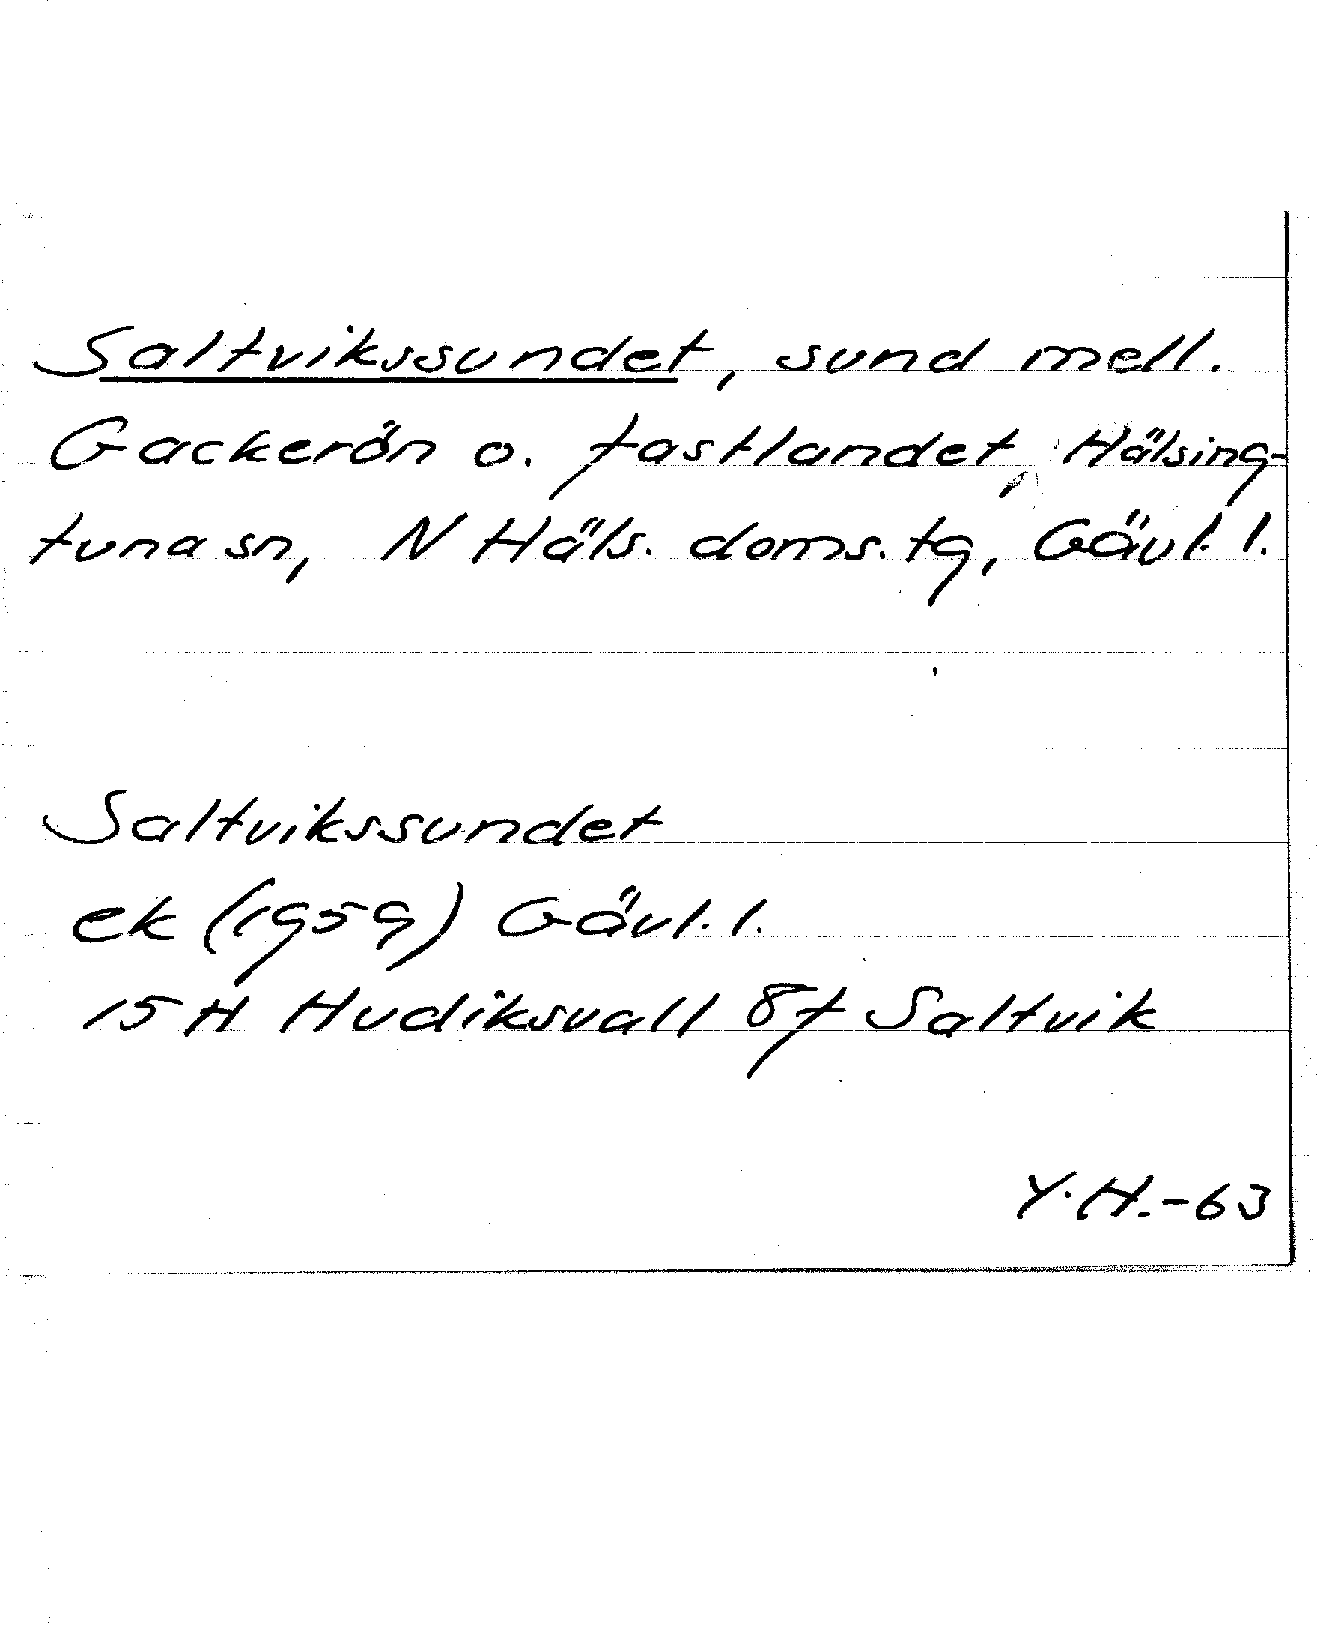 Saltvikssundet, sund mell.
Gackerön o. fastlandet, Hälsing-
tuna sn, N Häls. doms. tg, Gävl. l.
Saltvikssundet
ek (1959) Gävl. l.
15 H Hudiksvall 8f Saltvik
Y.H.-63